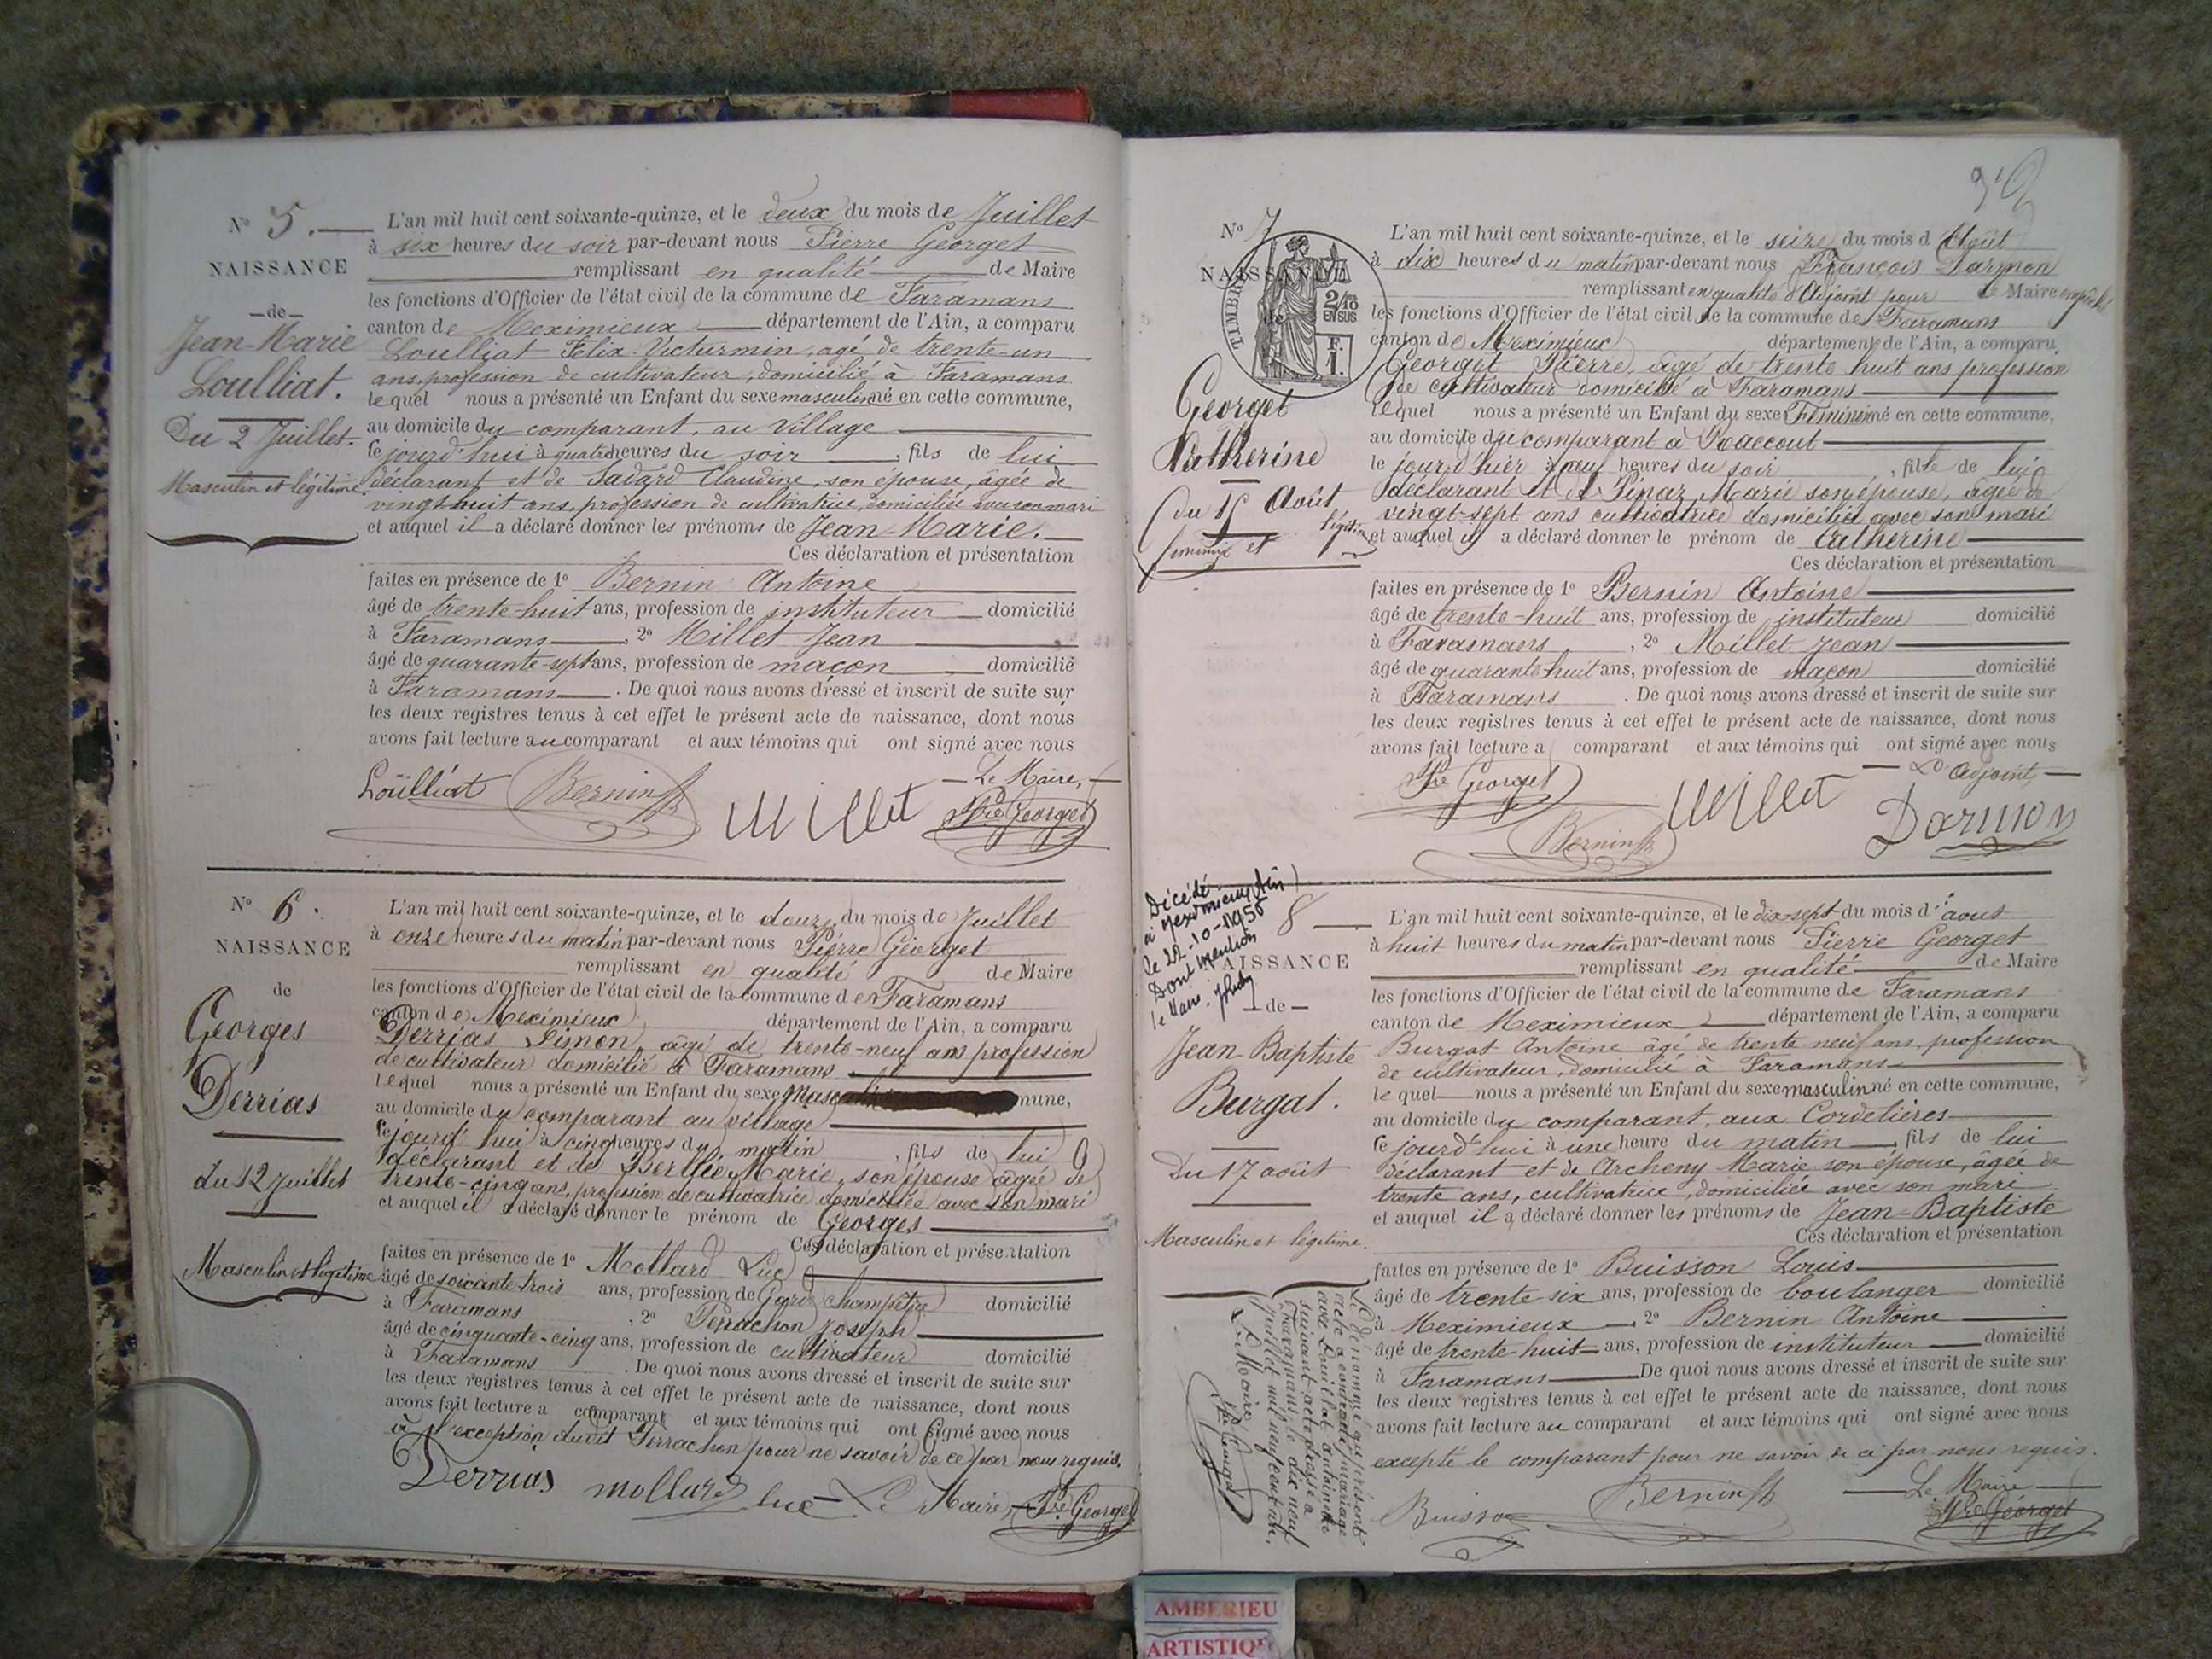 N° 5.
NAISSANCE
de
Jean-Marie
Loulliat.
Du 2 Juillet.
Masculin et légitime
L'an mil huit cent soixante-quinze, et le deux du mois de Juillet
à six heures du soir par-devant nous Pierre Georget
remplissant en qualité de Maire
les fonctions d'Officier de l'état civil de la commune de Faramans
canton de Meximieux département de l'Ain, a comparu
Loulliat Félix Victurmin, agé de trente-un
ans, profession de cultivateur, domicilié à Faramans
lequel nous a présenté un Enfant du sexe masculin né en cette commune,
au domicile du comparant, au Village
ce jourd'hui à quatre heures du soir, fils de lui
déclarant et de Sadard Claudine, son épouse, âgée de
vingt-huit ans, profession de cultivatrice, domiciliée avec son mari
et auquel il a déclaré donner les prénoms de Jean-Marie.
Ces déclaration et présentation
faites en présence de 1° Bernin Antoine
âgé de trente-huit ans, profession de instituteur domicilié
à Faramans, 2° Millet Jean
âgé de quarante-sept ans, profession de maçon domicilié
à Faramans. De quoi nous avons dressé et inscrit de suite sur
les deux registres tenus à cet effet le présent acte de naissance, dont nous
avons fait lecture au comparant et aux témoins qui ont signé avec nous
Le Maire,
Loülliat Bernin Millet Pre Georget
N° 6.
NAISSANCE
de
Georges
Derrias
du 12 juillet
Masculin et légitime
L'an mil huit cent soixante-quinze, et le douze du mois de Juillet
à onze heures du matin par-devant nous Pierre Georget
remplissant en qualité de Maire
les fonctions d'Officier de l'état civil de la commune de Faramans
canton de Meximieux département de l'Ain, a comparu
Derrias Simon, agé de trente-neuf ans profession
de cultivateur domicilié à Faramans
lequel nous a présenté un Enfant du sexe Masc mune,
au domicile du comparant au village
ce jourd'hui à cinq heures du matin, fils de lui
déclarant et de Berthe Marie, son épouse agée de
trente-cinq ans, profession de cultivatrice domiciliée avec son mari
et auquel il a déclaré donner le prénom de Georges
Ces déclaration et présentation
faites en présence de 1° Mollard Luc
âgé de soixante-trois ans, profession de Garde champêtre domicilié
à Faramans, 2° Perrachon Joseph
âgé de cinquante-cinq ans, profession de cultivateur domicilié
à Faramans. De quoi nous avons dressé et inscrit de suite sur
les deux registres tenus à cet effet le présent acte de naissance, dont nous
avons fait lecture a comparant et aux témoins qui ont signé avec nous
à l'exception dudit Perrachon pour ne savoir de ce par nous requis.
Derrias mollard luc Le Maire, Pre Georget
N° 7
NAISSANCE
de
TIMBRE
2/10
EN SUS
F.
1.
Georget
Catherine
du 15 Août
féminin et légitime
L'an mil huit cent soixante-quinze, et le seize du mois d'Août
à dix heures du matin par-devant nous François Darmon
remplissant en qualité d'Adjoint pour le Maire empêché
les fonctions d'Officier de l'état civil de la commune de Faramans
canton de Meximieux département de l'Ain, a comparu
Georget Pierre, agé de trente huit ans profession
de cultivateur domicilié à Faramans
lequel nous a présenté un Enfant du sexe Féminin né en cette commune,
au domicile du comparant à
le jour d'hier à neuf heures du soir, fille de lui
déclarant et d Pinaz Marie son épouse, agée de
vingt-sept ans cultivatrice domiciliée avec son mari
et auquel il a déclaré donner le prénom de Catherine
Ces déclaration et présentation
faites en présence de 1° Bernin Antoine
âgé de trente-huit ans, profession de instituteur domicilié
à Faramans, 2° Millet Jean
âgé de quarante-huit ans, profession de maçon domicilié
à Faramans. De quoi nous avons dressé et inscrit de suite sur
les deux registres tenus à cet effet le présent acte de naissance, dont nous
avons fait lecture a comparant et aux témoins qui ont signé avec nous
L'adjoint,
Pre Georget Millet
Bernin Darmon
Décédé
à Meximieux (Ain)
le 22-10-1956
Dont mention
le Maire.
8
NAISSANCE
de
Jean-Baptiste
Burgat.
Du 17 août
Masculin et légitime.
Le dénommé au présent
acte a contracté mariage
avec
suivant acte dressé à
Faramans, le dix neuf
juillet mil neuf cent un.
Le Maire,
L'an mil huit cent soixante-quinze, et le dix-sept du mois d'aout
à huit heures du matin par-devant nous Pierre Georget
remplissant en qualité de Maire
les fonctions d'Officier de l'état civil de la commune de Faramans
canton de Meximieux département de l'Ain, a comparu
Burgat Antoine âgé de trente neuf ans, profession
de cultivateur, domicilié à Faramans
lequel nous a présenté un Enfant du sexe masculin né en cette commune,
au domicile du comparant, aux Cordelières
ce jourd'hui à une heure du matin, fils de lui
déclarant et de Archeny Marie son épouse, âgée de
trente ans, cultivatrice, domiciliée avec son mari
et auquel il a déclaré donner les prénoms de Jean-Baptiste
Ces déclaration et présentation
faites en présence de 1° Buisson Louis
âgé de trente-six ans, profession de boulanger domicilié
à Meximieux, 2° Bernin Antoine
âgé de trente-huit ans, profession de instituteur domicilié
à Faramans De quoi nous avons dressé et inscrit de suite sur
les deux registres tenus à cet effet le présent acte de naissance, dont nous
avons fait lecture au comparant et aux témoins qui ont signé avec nous
excepté le comparant pour ne savoir de ce par nous requis.
Le Maire
Buisson Bernin Pre Georget
AMBERIEU
ARTISTIQ